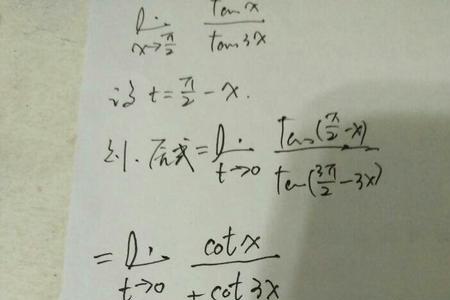 lim x→π/2 tan x / tan 3x
设 t = π/2 - x.
则. 原式 = lim t→0 tan(π/2 - x) / tan(3π/2 - 3x)
= lim t→0 cot x / + cot 3x